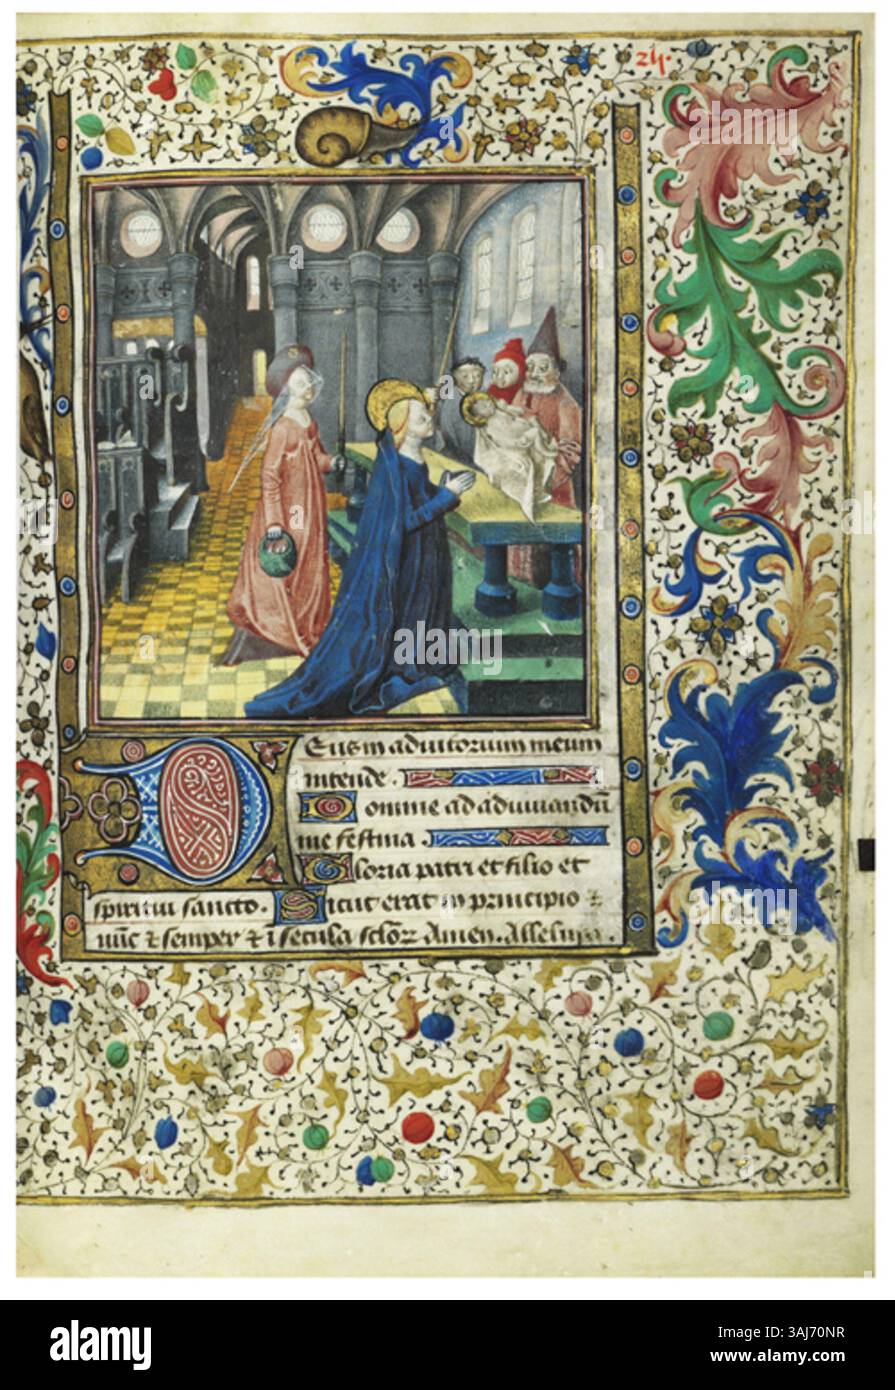 24.
Eus in adiutorium meum
intende.
Domine ad adiuuandū
me festina.
Gloria patri et filio et
spiritui sancto. Sicut erat in principio ⁊
nūc ⁊ semper ⁊ ī secula sclōꝝ Amen. Alleluya.
alamy
Image ID: 3AJ70NR
www.alamy.com